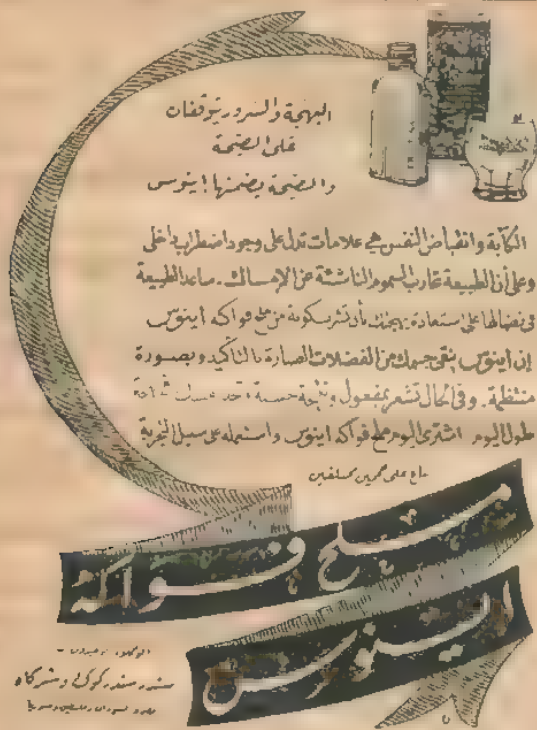 البهجة والسرور يتوقفان
على الصحة
والصحة يضمنها اينوس
الكآبة وانقباض النفس هي علامات تدل على وجود اضطراب داخلي
وعلى أن الطبيعة تحارب السموم الناشئة عن الإمساك . ساعد الطبيعة
في نضالها على استعادة بهجتك بأن تشرب كوبة من ملح فواكه اينوس
إن اينوس ينقي جسمك من الفضلات الضارة بالتأكيد وبصورة
منتظمة . وفي الحال تشعر بمفعول
طول اليوم اشتري اليوم ملح فواكه اينوس واستعمله على سبيل التجربة
يباع على حجمين مختلفين
ملح فواكه
اينوس
الوكلاء الوحيدون
وشركاه